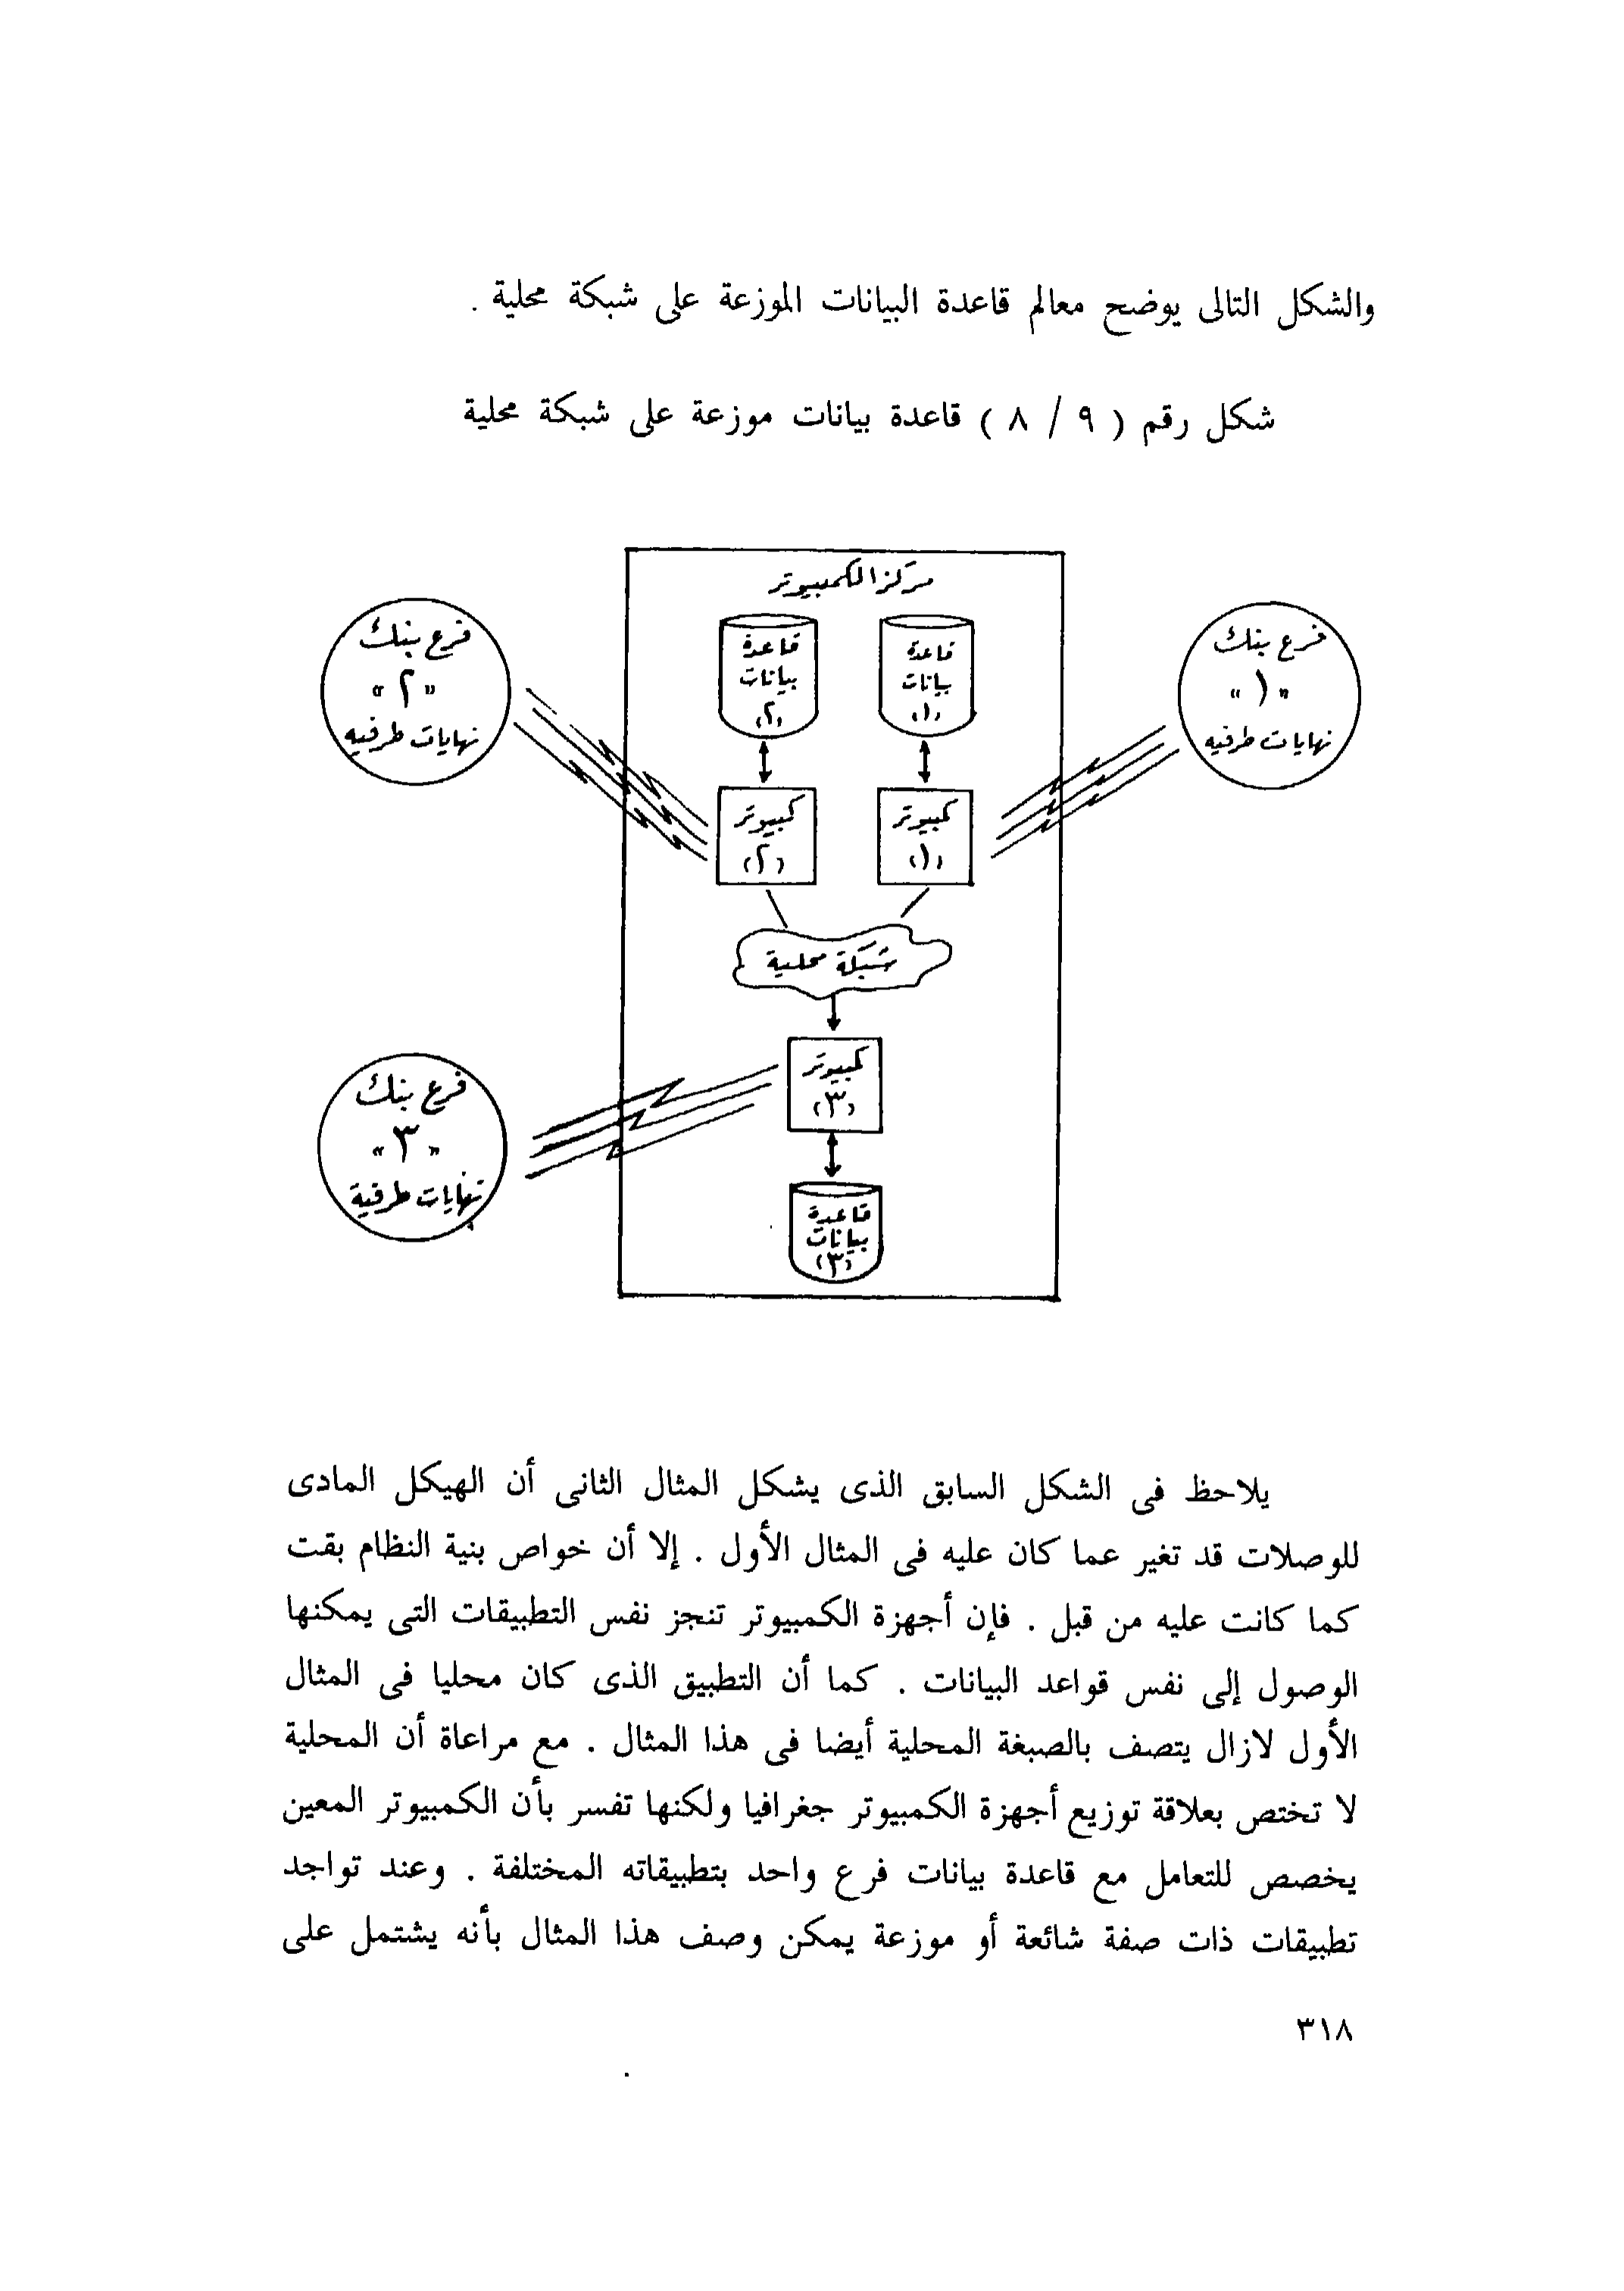 والشكل التالى يوضح معالم قاعدة البيانات الموزعة على شبكة محلية .
شكل رقم ( ٩ / ٨ ) قاعدة بيانات موزعة على شبكة محلية
مركز الكمبيوتر
فرع بنك
"١"
نهايات طرفيه
قاعدة
بيانات
(١)
كمبيوتر
(١)
قاعدة
بيانات
(٢)
كمبيوتر
(٢)
فرع بنك
"٢"
نهايات طرفيه
شبكة محلية
كمبيوتر
(٣)
قاعدة
بيانات
(٣)
فرع بنك
"٣"
نهايات طرفية
يلاحظ فى الشكل السابق الذى يشكل المثال الثانى أن الهيكل المادى
للوصلات قد تغير عما كان عليه فى المثال الأول . إلا أن خواص بنية النظام بقت
كما كانت عليه من قبل . فإن أجهزة الكمبيوتر تنجز نفس التطبيقات التى يمكنها
الوصول إلى نفس قواعد البيانات . كما أن التطبيق الذى كان محليا فى المثال
الأول لازال يتصف بالصبغة المحلية أيضا فى هذا المثال . مع مراعاة أن المحلية
لا تختص بعلاقة توزيع أجهزة الكمبيوتر جغرافيا ولكنها تفسر بأن الكمبيوتر المعين
يخصص للتعامل مع قاعدة بيانات فرع واحد بتطبيقاته المختلفة . وعند تواجد
تطبيقات ذات صفة شائعة أو موزعة يمكن وصف هذا المثال بأنه يشتمل على
٣١٨